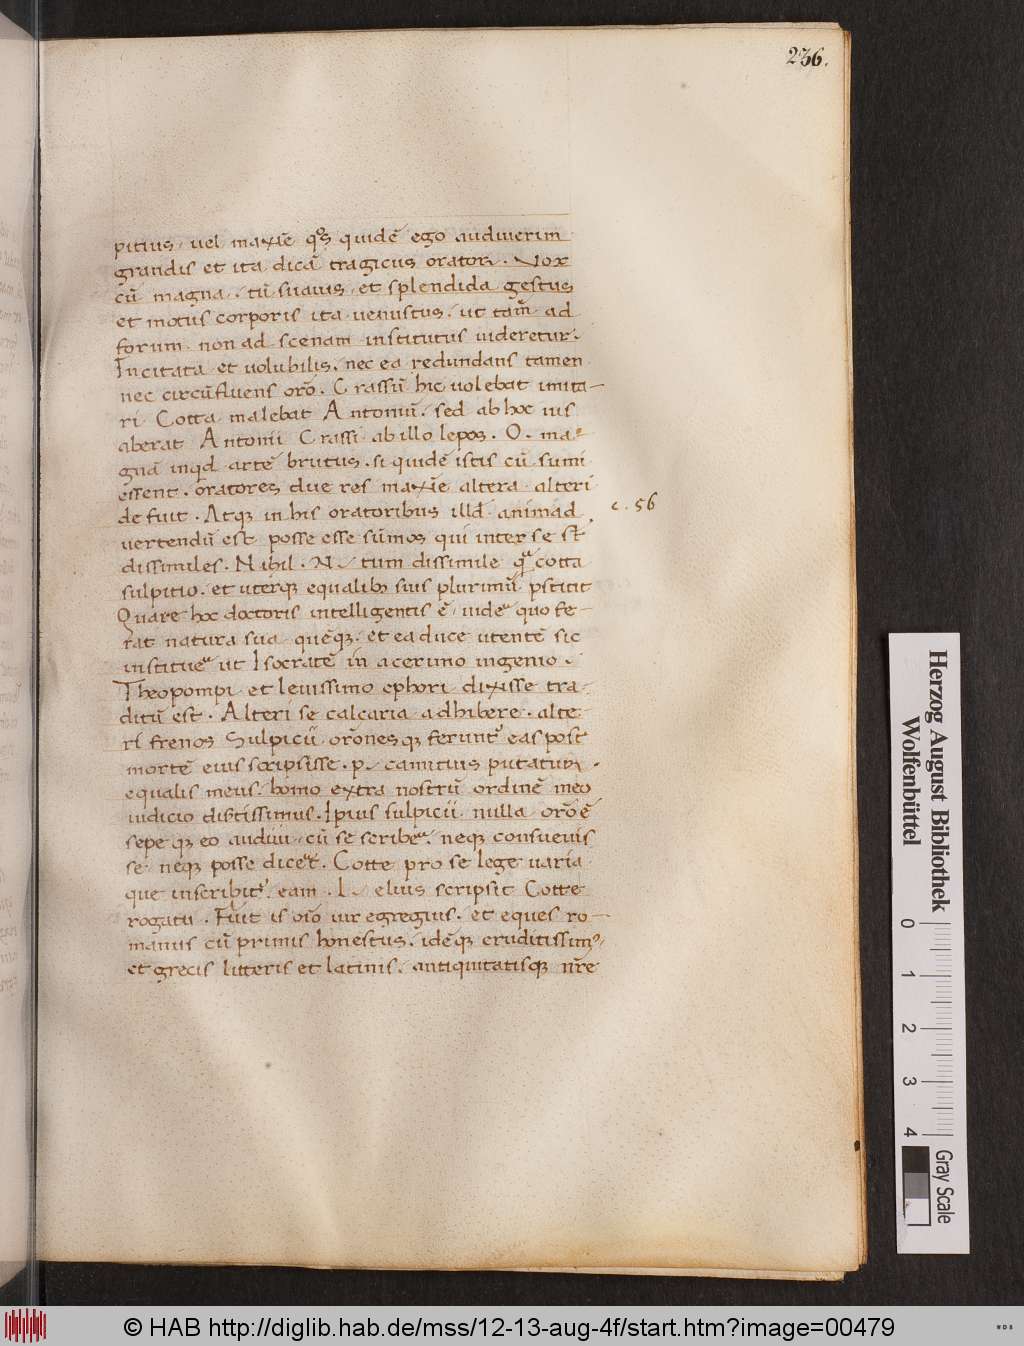 236.
pitius, uel maxīe q̊s quidē ego audiuerim
grandis et ita dicā tragicus orator. Vox
cū magna. tū suauis, et splendida gestus
et motus corporis ita uenustus. ut tam̄ ad
forum non ad scenam institutus uideretur.
Incitata et uolubilis. nec ea redundans tamen
nec circūfluens orō. Crassū hic uolebat imita-
ri Cotta malebat Antoniū. sed ab hoc uis
aberat Antonii Crassi ab illo lepos. O. ma-
gnā inqd artē brutus. si quidē istis cū sumi
essent. oratores due res maxīe altera alteri
defuit. Atqȝ in his oratoribus illd animad
c. 56
uertendū est posse esse sūmos qui inter se st̄
dissimiles. Nihil. N. tum dissimile qᵃ cotta
sulpitio. et uterqȝ equalibȝ suis plurimū pstitit
Quare hoc doctoris intelligentis ē, uideʳ quo fe-
rat natura sua quēqȝ. et ea duce utentē sic
institueʳ ut Isocratē in acerimo ingenio.
Theopompi et leuissimo ephori dixisse tra-
ditū est. Alteri se calcaria adhibere. alte-
ri frenos Sulpicii orōnesqȝ feruntʳ eas post
mortē eius scripsisse. p. cannutius putatur.
equalis meus. homo extra nostrū ordinē meo
iudicio disertissimus. Ipius sulpicii nulla orō ē
sepeqȝ eo audiui. cū se scribeʳ. neqȝ consueuis
se neqȝ posse diceʳet. Cotte pro se lege uaria
que inscribitʳ. eam. L. elius scripsit Cotte
rogatu. Fuit is oīo uir egregius. et eques ro-
manus cū primis honestus. idēqȝ eruditissimꝰ
et grecis litteris et latinis. antiquitatisqȝ nr̄e
Herzog August Bibliothek
Wolfenbüttel
0 1 2 3 4
Gray Scale
© HAB http://diglib.hab.de/mss/12-13-aug-4f/start.htm?image=00479